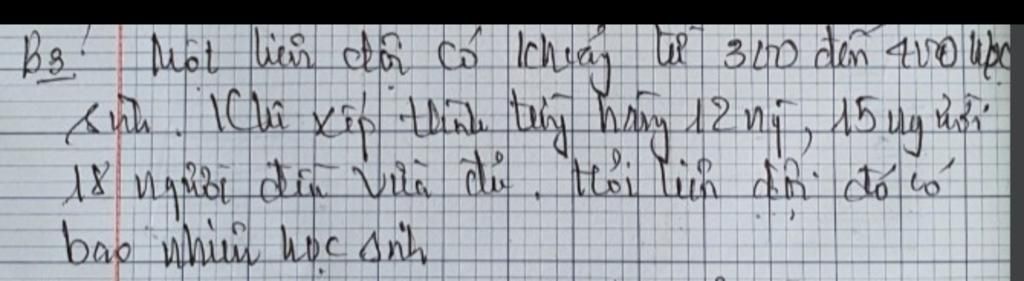 B3: Một liên đội có khoảng từ 300 đến 400 học
sinh. Khi xếp thành từng hàng 12 ng, 15 người
18 người đều vừa đủ. Hỏi liên đội đó có
bao nhiêu học sinh